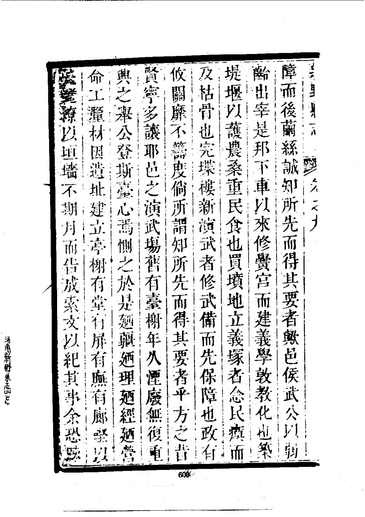 障而後繭絲誠知所先而得其要者歟邑侯武公以
出宰是邦下車以來修黌宮而建義學敦教化也築
堤堰以護農桑重民食也買墳地立義塚者念民瘼而
及枯骨也完堞樓新演武者修武備而先保障也政有
攸關靡不籌度倘所謂知所先而得其要者乎方之昔
賢寧多讓耶邑之演武場舊有臺榭年久煙廢無復
興之舉公登斯臺心焉惻之於是廼疆廼理廼經廼營
命工釐材因遺址建立亭榭有堂有屏有廡有廊堅以
繚以垣墻不期月而告成索文以紀其事余恐
卷之九
600